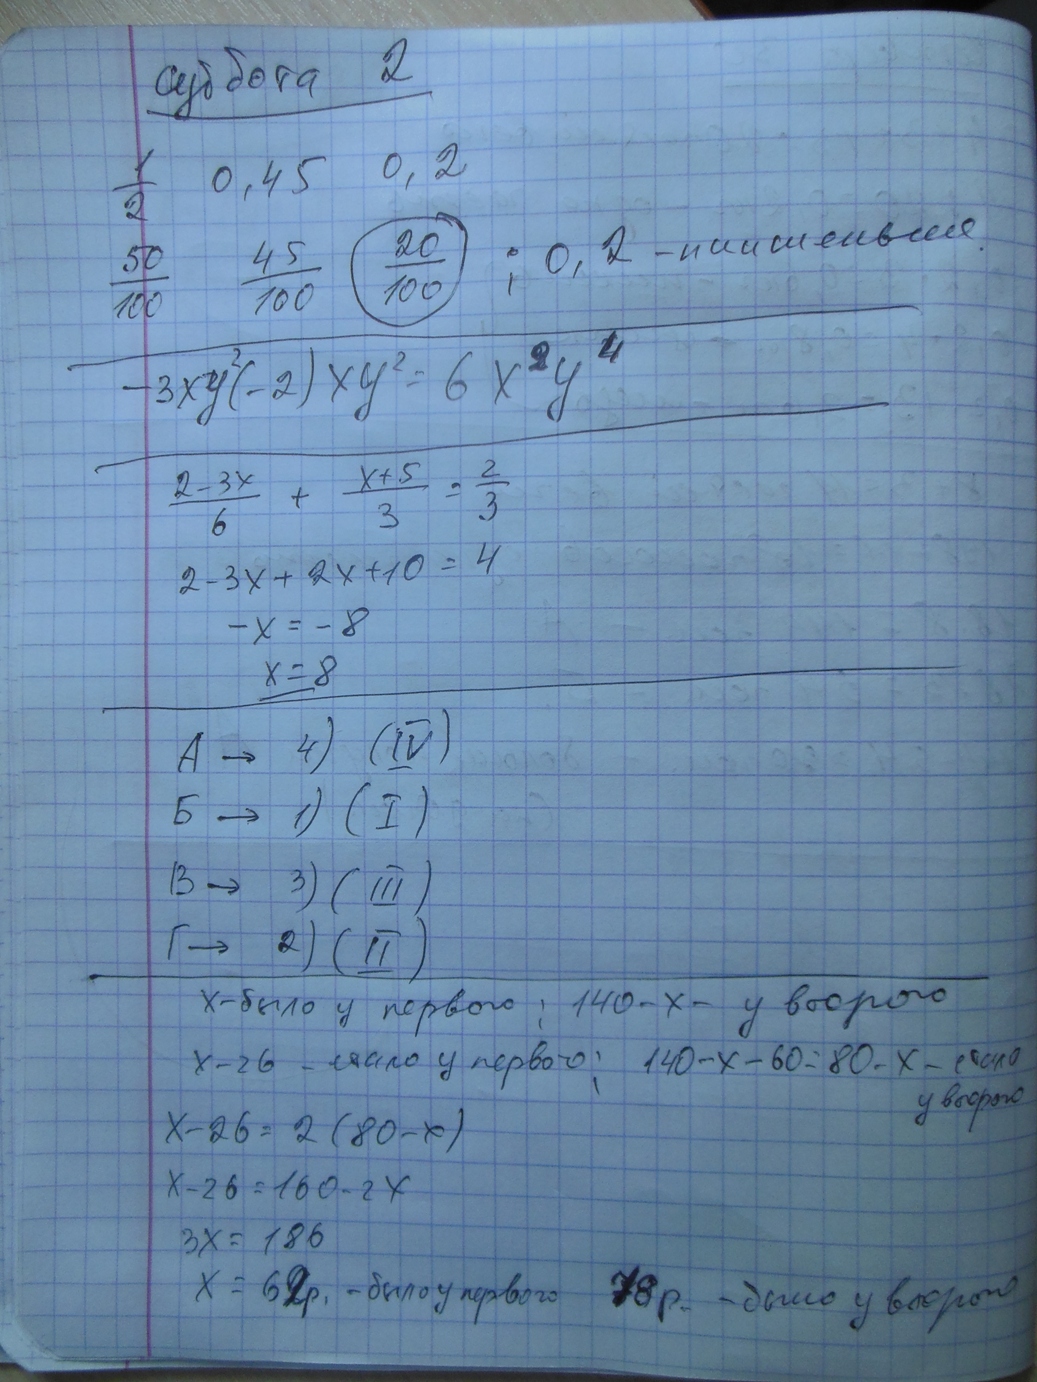 суббота 2
1/2 0,45 0,2
50/100 45/100 20/100 ; 0,2 - наименьшее.
-3xy²(-2)xy² = 6x²y⁴
(2-3x)/6 + (x+5)/3 = 2/3
2-3x+2x+10 = 4
-x = -8
x = 8
А → 4) (IV)
Б → 1) (I)
В → 3) (III)
Г → 2) (II)
x - было у первого ; 140-x - у второго
x-26 - стало у первого ; 140-x-60=80-x - стало
у второго
x-26 = 2(80-x)
x-26 = 160-2x
3x = 186
x = 62р. - было у первого 78р. - было у второго